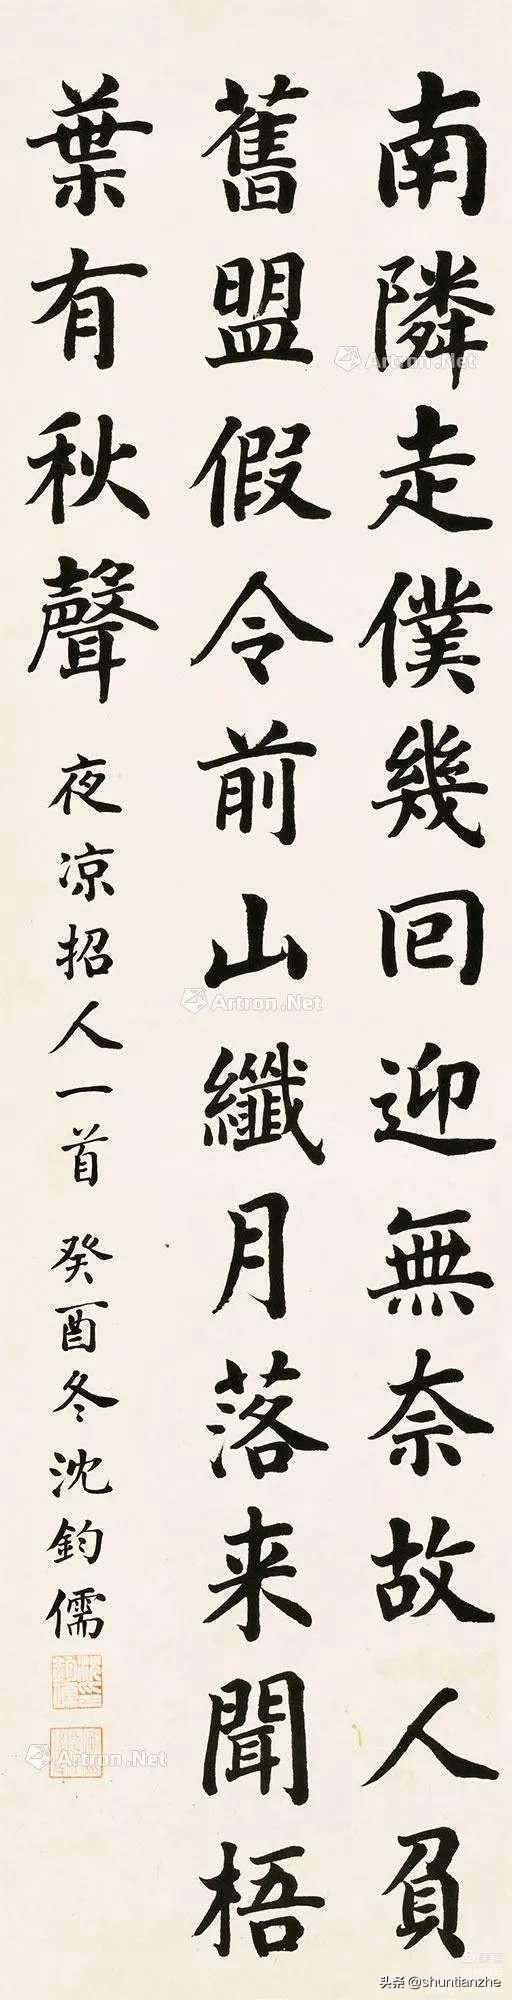 南隣走僕幾回迎無奈故人負
舊盟假令前山纖月落来聞梧
葉有秋聲
夜凉招人一首 癸酉冬沈鈞儒
Artron.Net
Artron.Net
Artron.Net
头条 @shuntianzhe